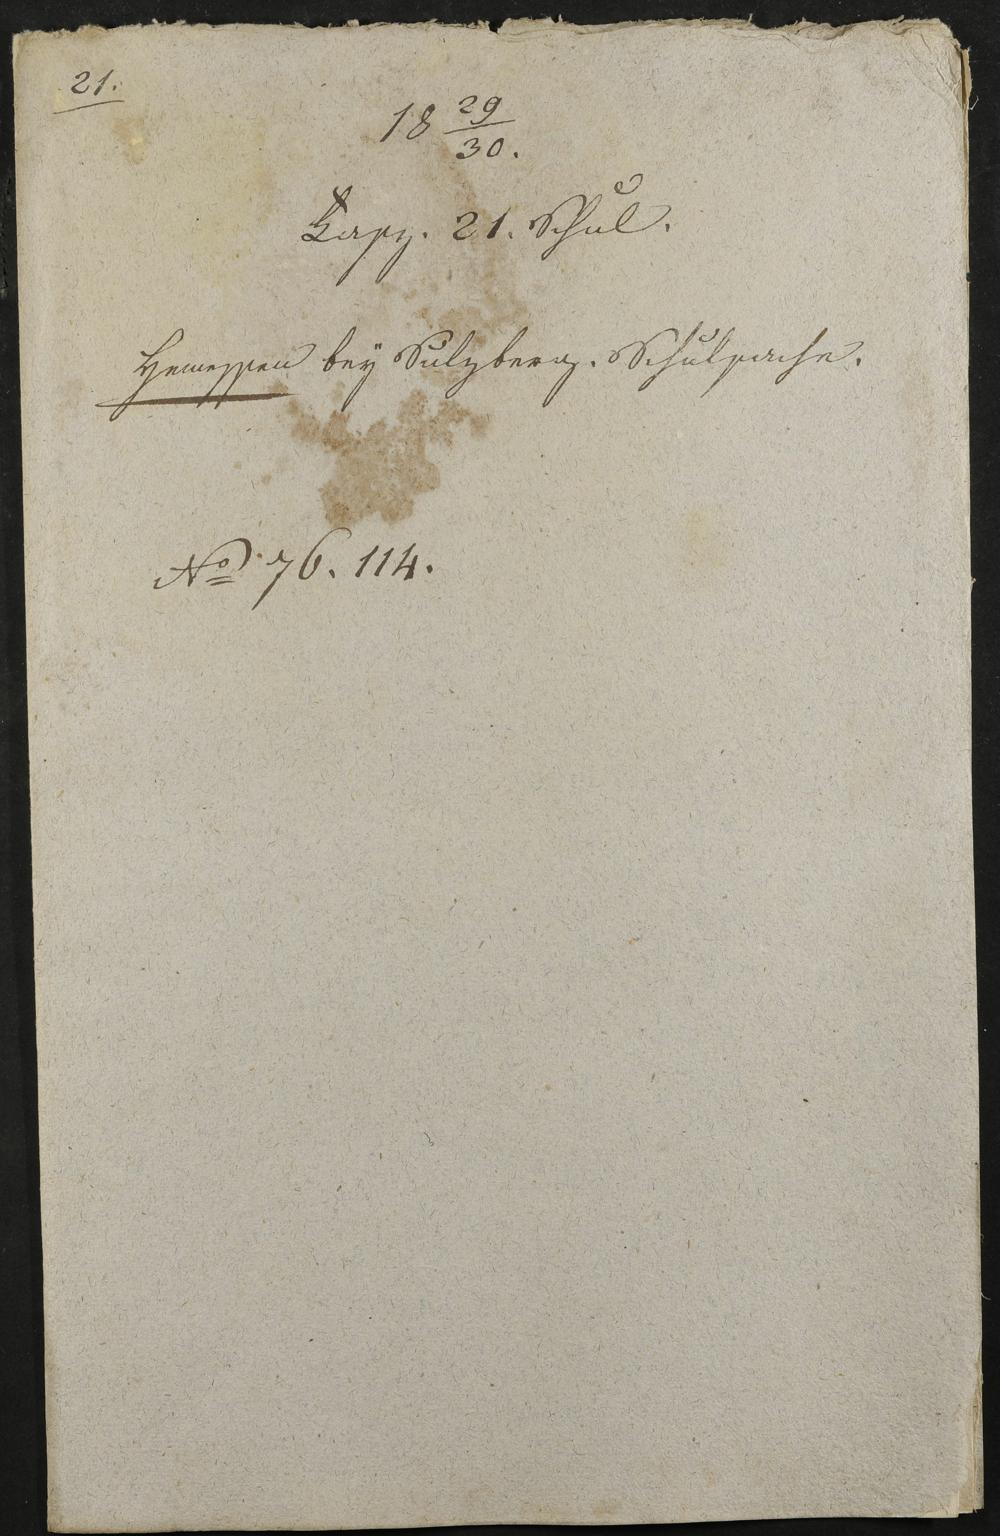 21.
18 29/30.
Fasz. 21. Schul.
bey Sulzberg. Schulsache.
No 76. 114.